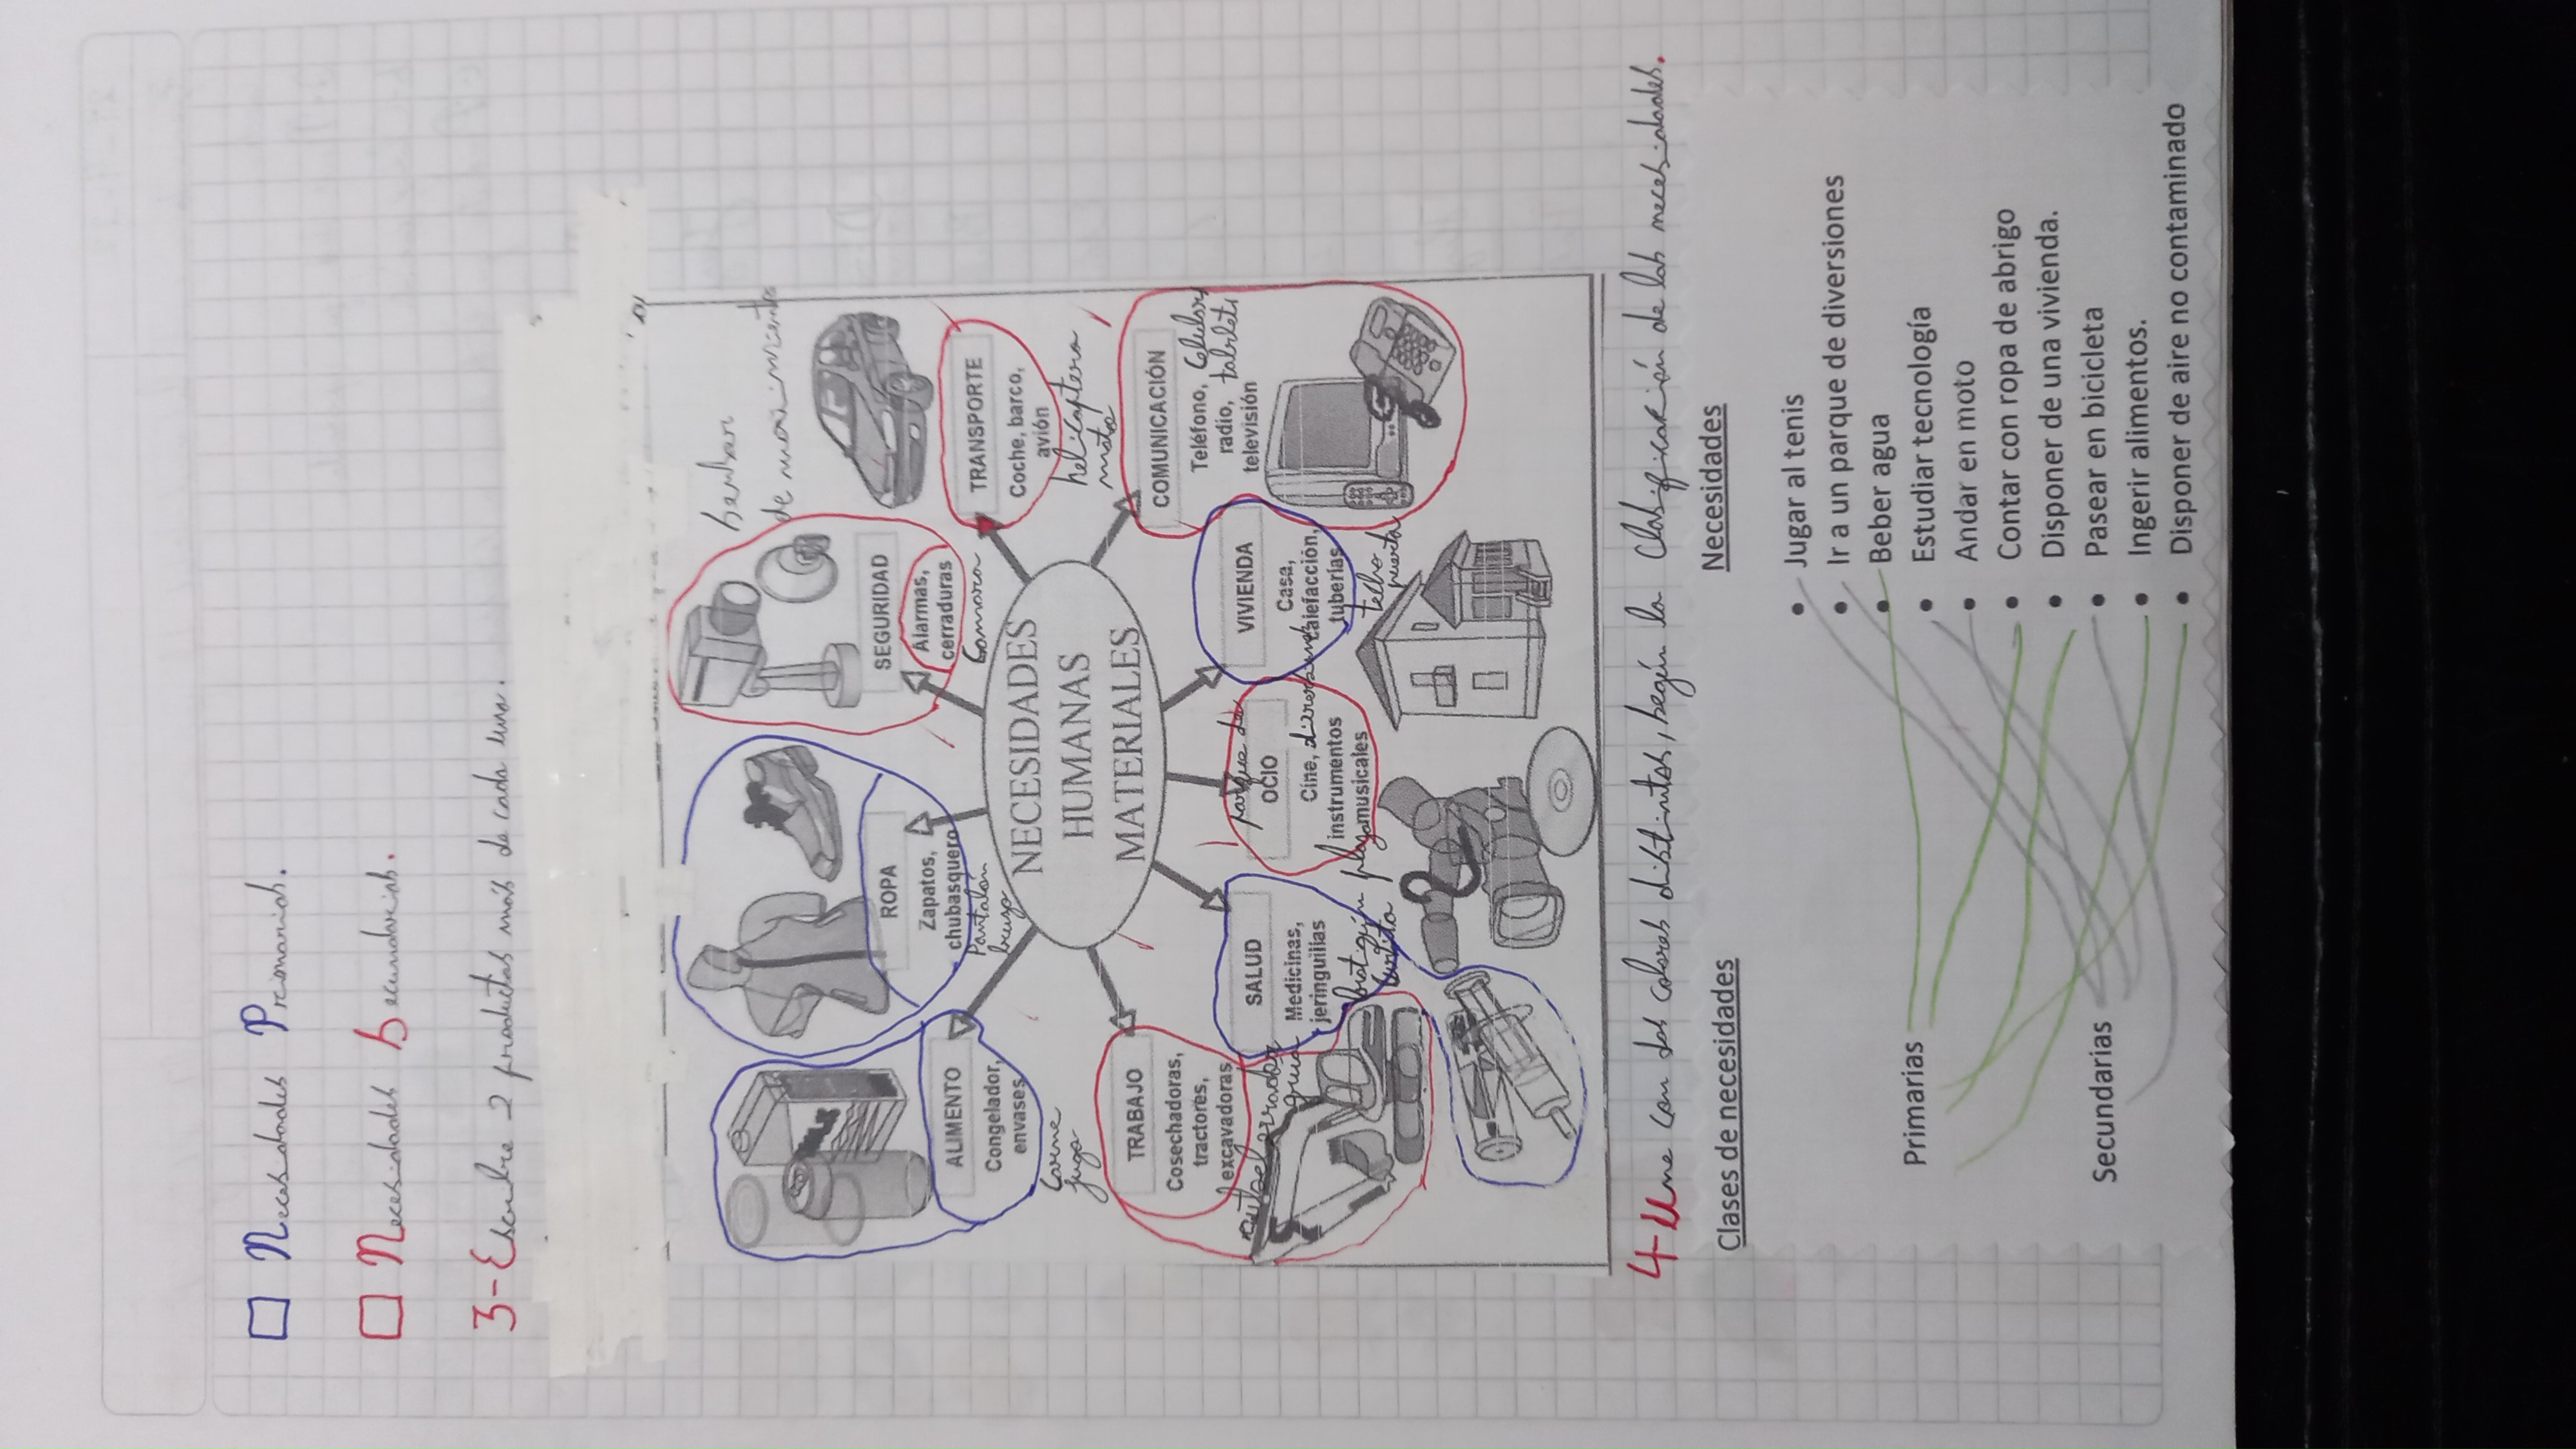 Necesidades Primarias.
Necesidades Secundarias.
3-Escribe 2 productos más de cada una.
sensor
de movimiento
SEGURIDAD
Alarmas,
cerraduras
Camara
TRANSPORTE
Coche, barco,
avión
helicoptero
moto
ROPA
Zapatos,
chubasquero
Pantalón
buzo
ALIMENTO
Congelador,
envases
Carne
jugo
NECESIDADES
HUMANAS
MATERIALES
COMUNICACIÓN
Teléfono, Celular
radio, tablets
televisión
TRABAJO
Cosechadoras,
tractores,
excavadoras
grua
SALUD
Medicinas,
jeringuillas
botiquín
Curita
parque de
OCIO
Cine, diversiones
instrumentos
playa musicales
VIVIENDA
Casa,
calefacción,
tuberías
techo
puerta
4-Une con dos colores distintos, según la clasificación de las necesidades.
Clases de necesidades
Necesidades
Primarias
Secundarias
• Jugar al tenis
• Ir a un parque de diversiones
• Beber agua
• Estudiar tecnología
• Andar en moto
• Contar con ropa de abrigo
• Disponer de una vivienda.
• Pasear en bicicleta
• Ingerir alimentos.
• Disponer de aire no contaminado